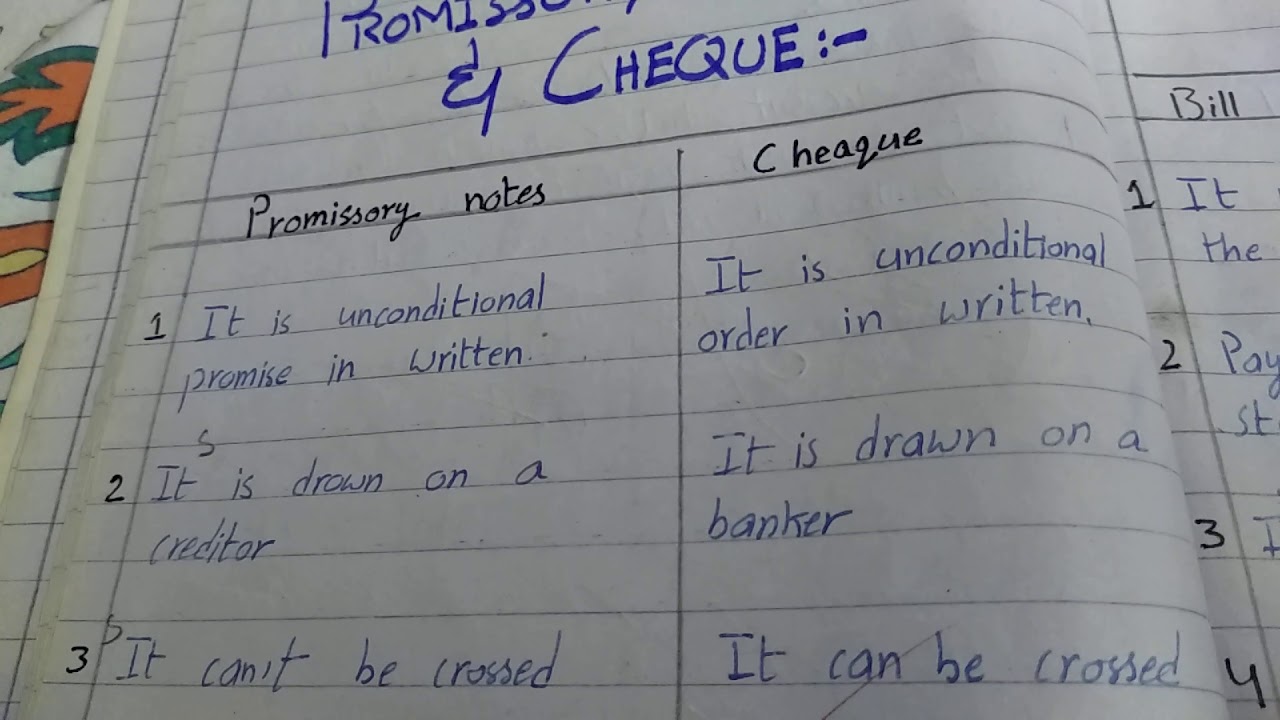 & CHEQUE:-
Promissory notes
Cheaque
1 It is unconditional
promise in written.
It is unconditional
order in written.
S
2 It is drown on a
creditor
It is drawn on a
banker
3 It can't be crossed
It can be crossed
Bill
1 It
the
2
3
4